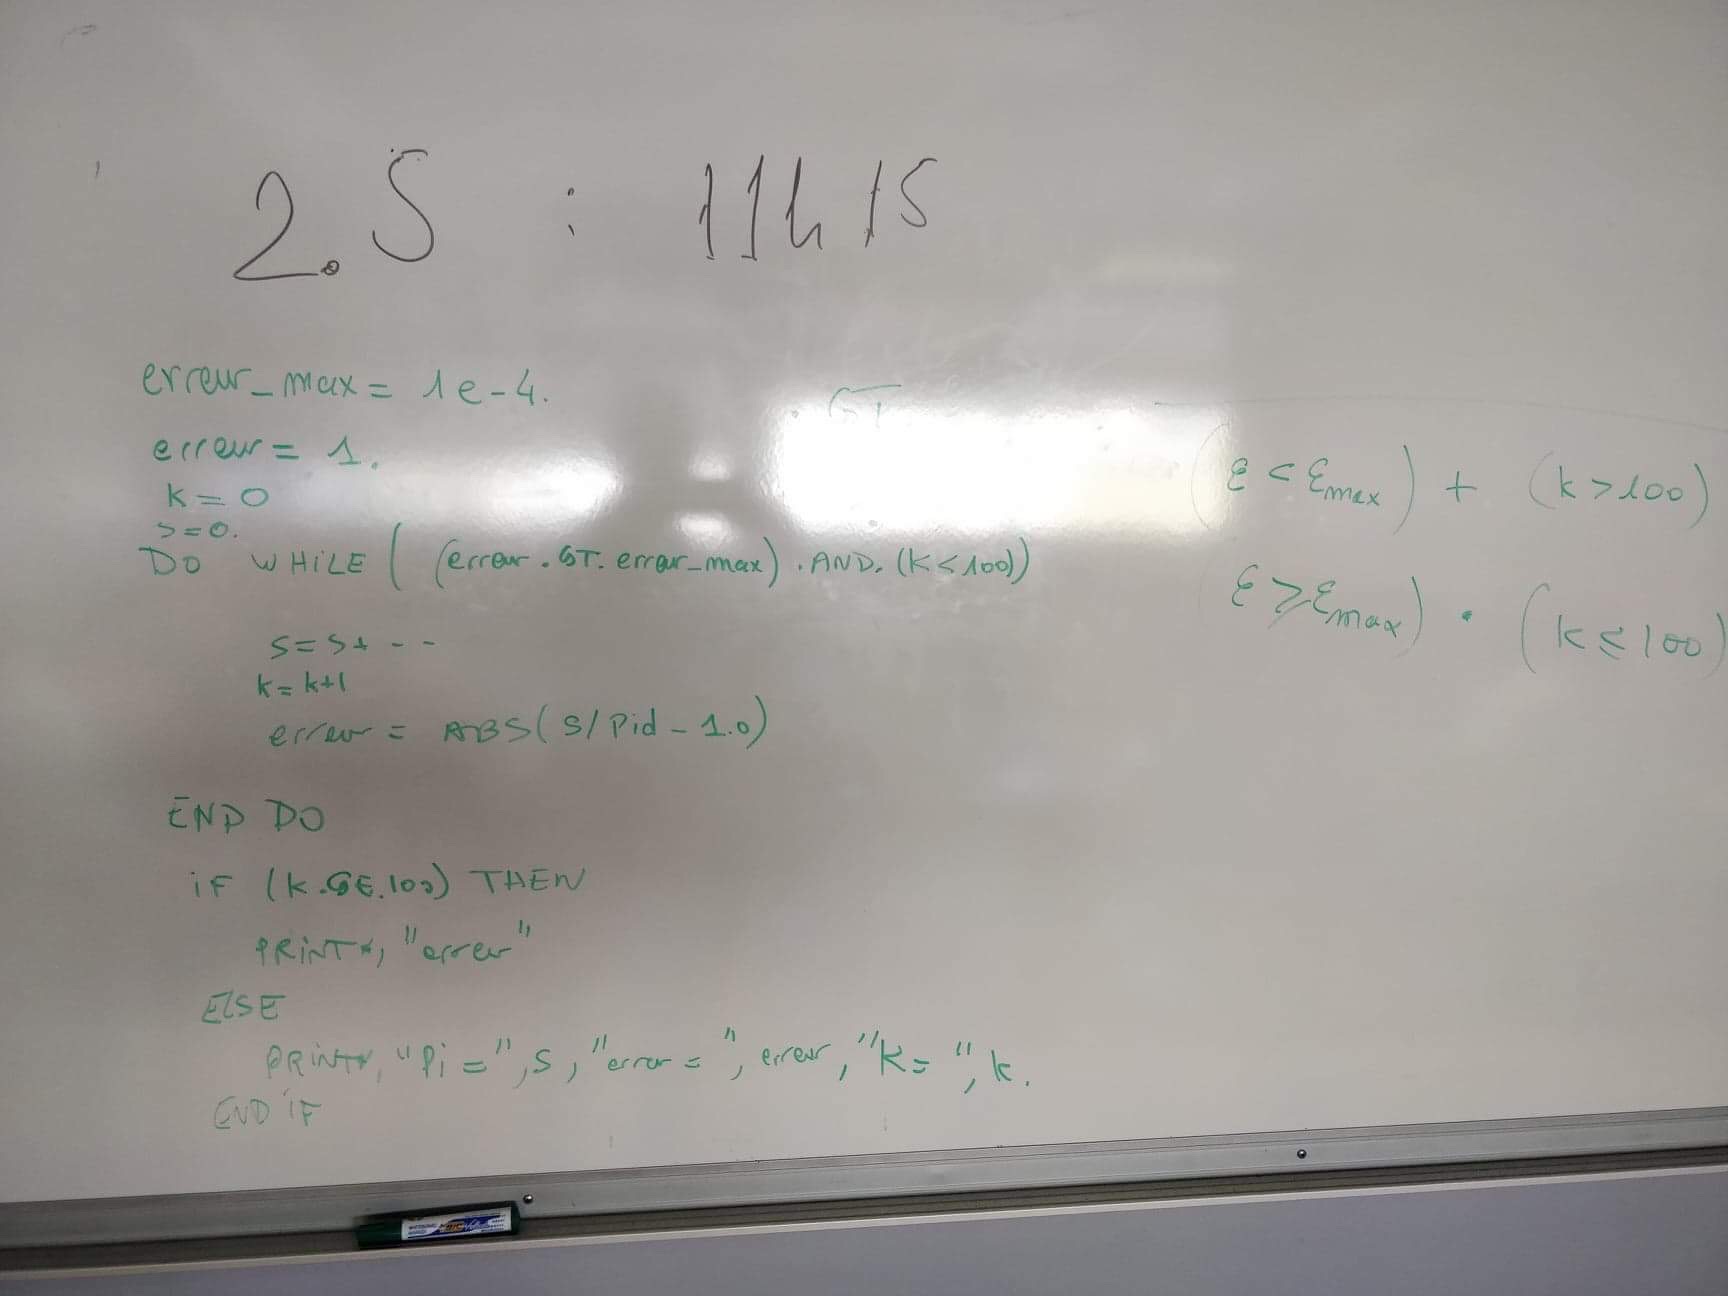 2.5 : 11h15
erreur_max = 1e-4.
erreur = 1.
k = 0
s=0.
DO WHILE ( (erreur .GT. erreur_max) .AND. (k<100))
s = s + - -
k = k+1
erreur = ABS(S/Pid - 1.0)
END DO
iF (k .GE. 100) THEN
PRINT*, "erreur"
ELSE
PRINT*, "Pi =", S, "error = ", erreur, "K= ", k.
END IF
. GT
(ε < εmax) + (k > 100)
ε ⩾ εmax) . (k ⩽ 100)